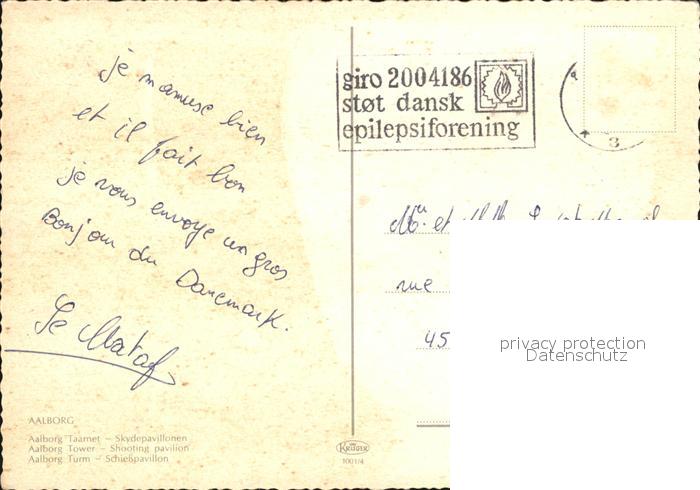 je mamuse bien
et il fait bon
je vous envoye un gros
Bonjour du Danemark.
Le Mataf
AALBORG
Aalborg Taarnet – Skydepavillonen
Aalborg Tower – Shooting pavilion
Aalborg Turm – Schießpavillon
KRÜGER
1001/4
giro 2004186
støt dansk
epilepsiforening
et
rue
45
privacy protection
Datenschutz